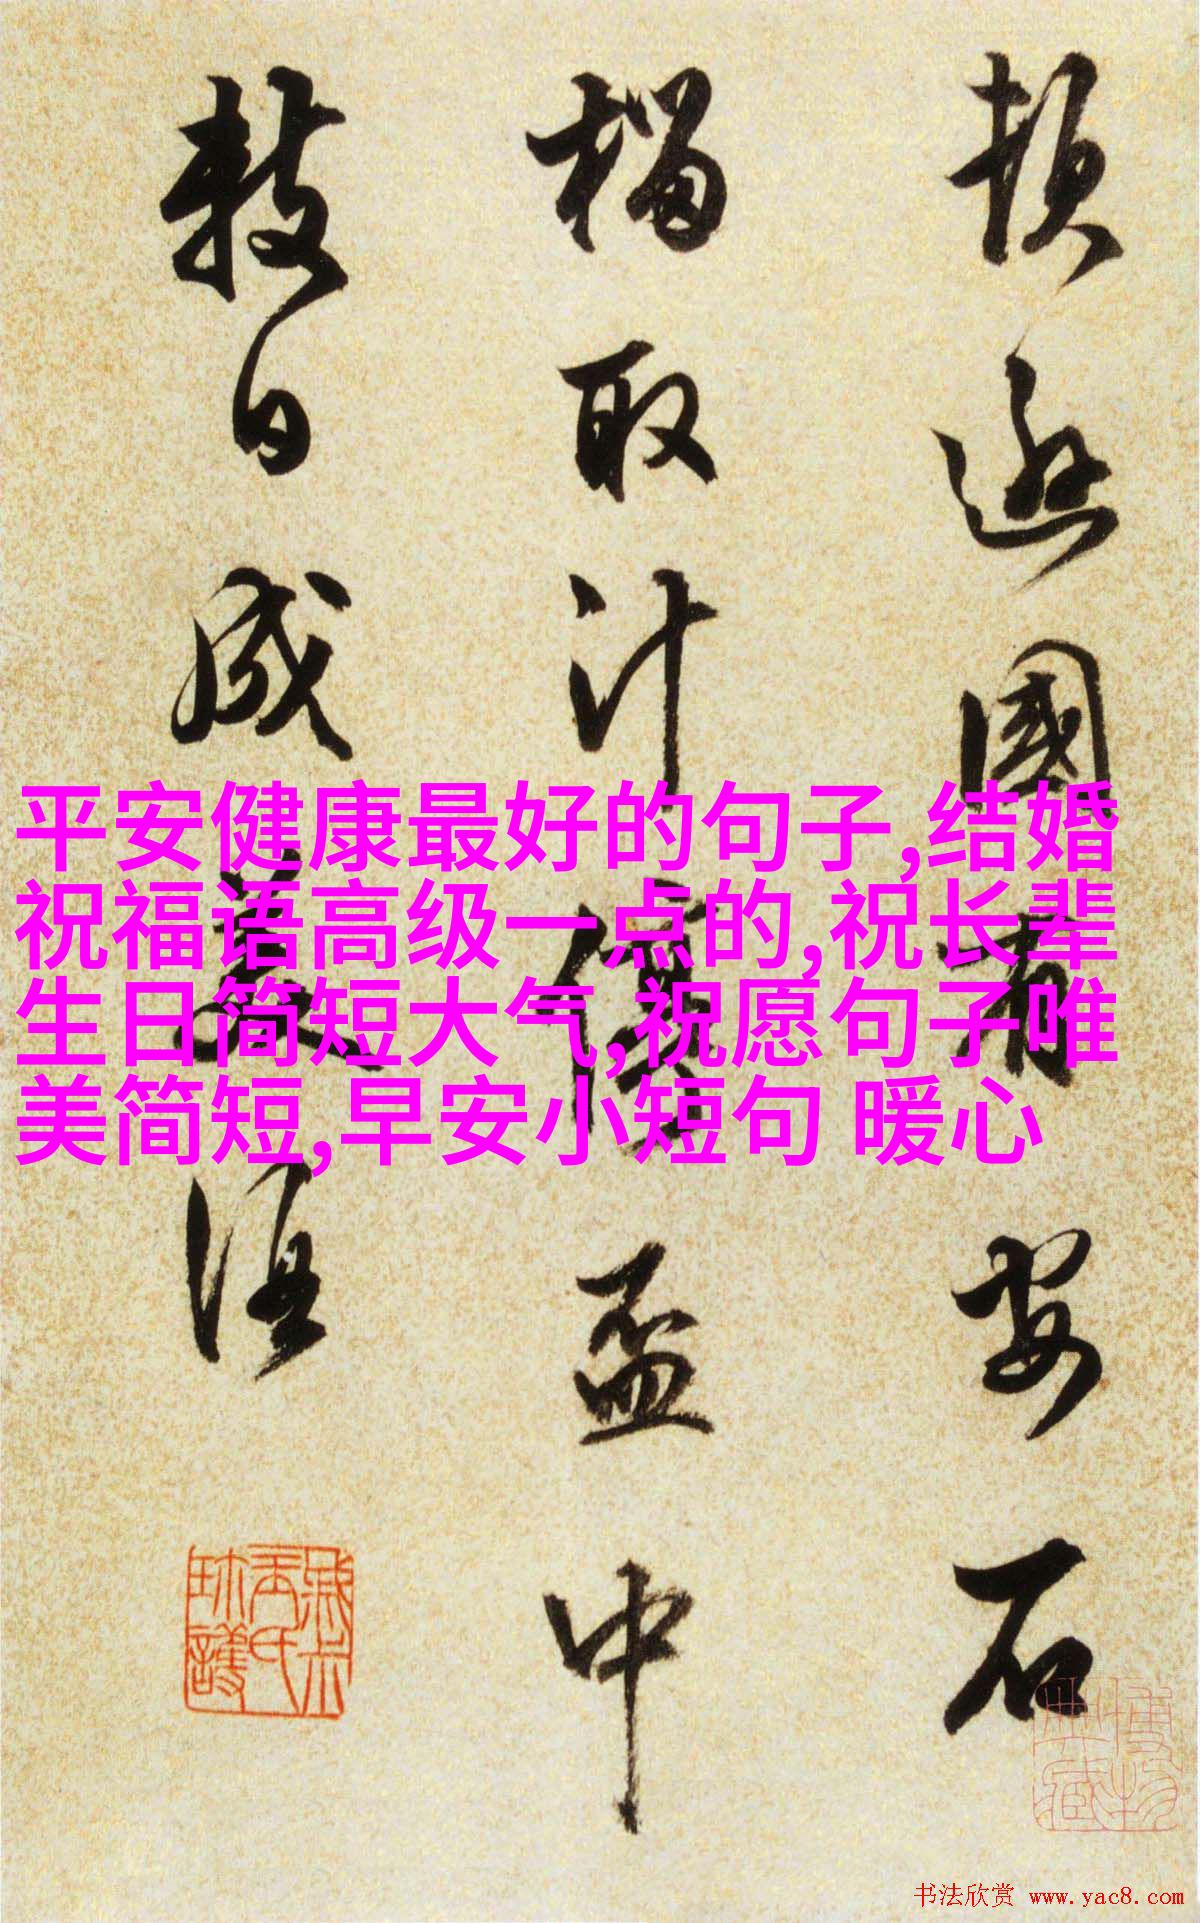 頓遜國有安石
榴取汁停盃中
數日成美酒
平安健康最好的句子,结婚
祝福语高级一点的,祝长辈
生日简短大气,祝愿句子唯
美简短,早安小短句 暖心
书法欣赏 www.yac8.com